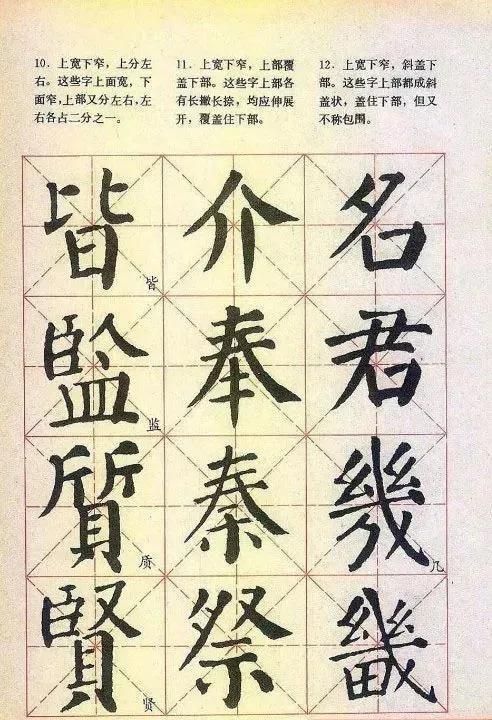 10．上宽下窄，上分左
右。这些字上面宽，下
面窄，上部又分左右，左
右各占二分之一。
11．上宽下窄，上部覆
盖下部。这些字上部各
有长撇长捺，均应伸展
开，覆盖住下部。
12．上宽下窄，斜盖下
部。这些字上部都成斜
盖状，盖住下部，但又
不称包围。
皆 皆
監 监
質 质
賢 贤
介
奉
秦
祭
名
君
幾 几
畿